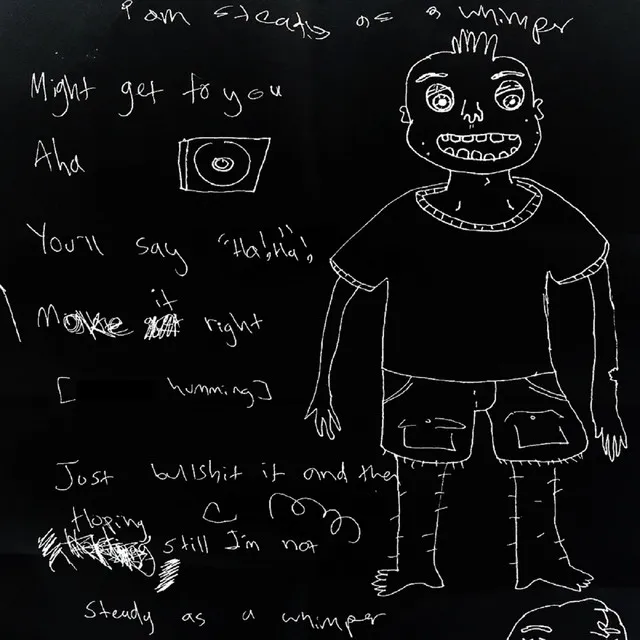 i am steady as a whimper
Might get to you
Aha
You'll say "Ha!, Ha!,
Make it right
[ humming]
Just bullshit it and then
Hoping still I'm not
Steady as a whimper